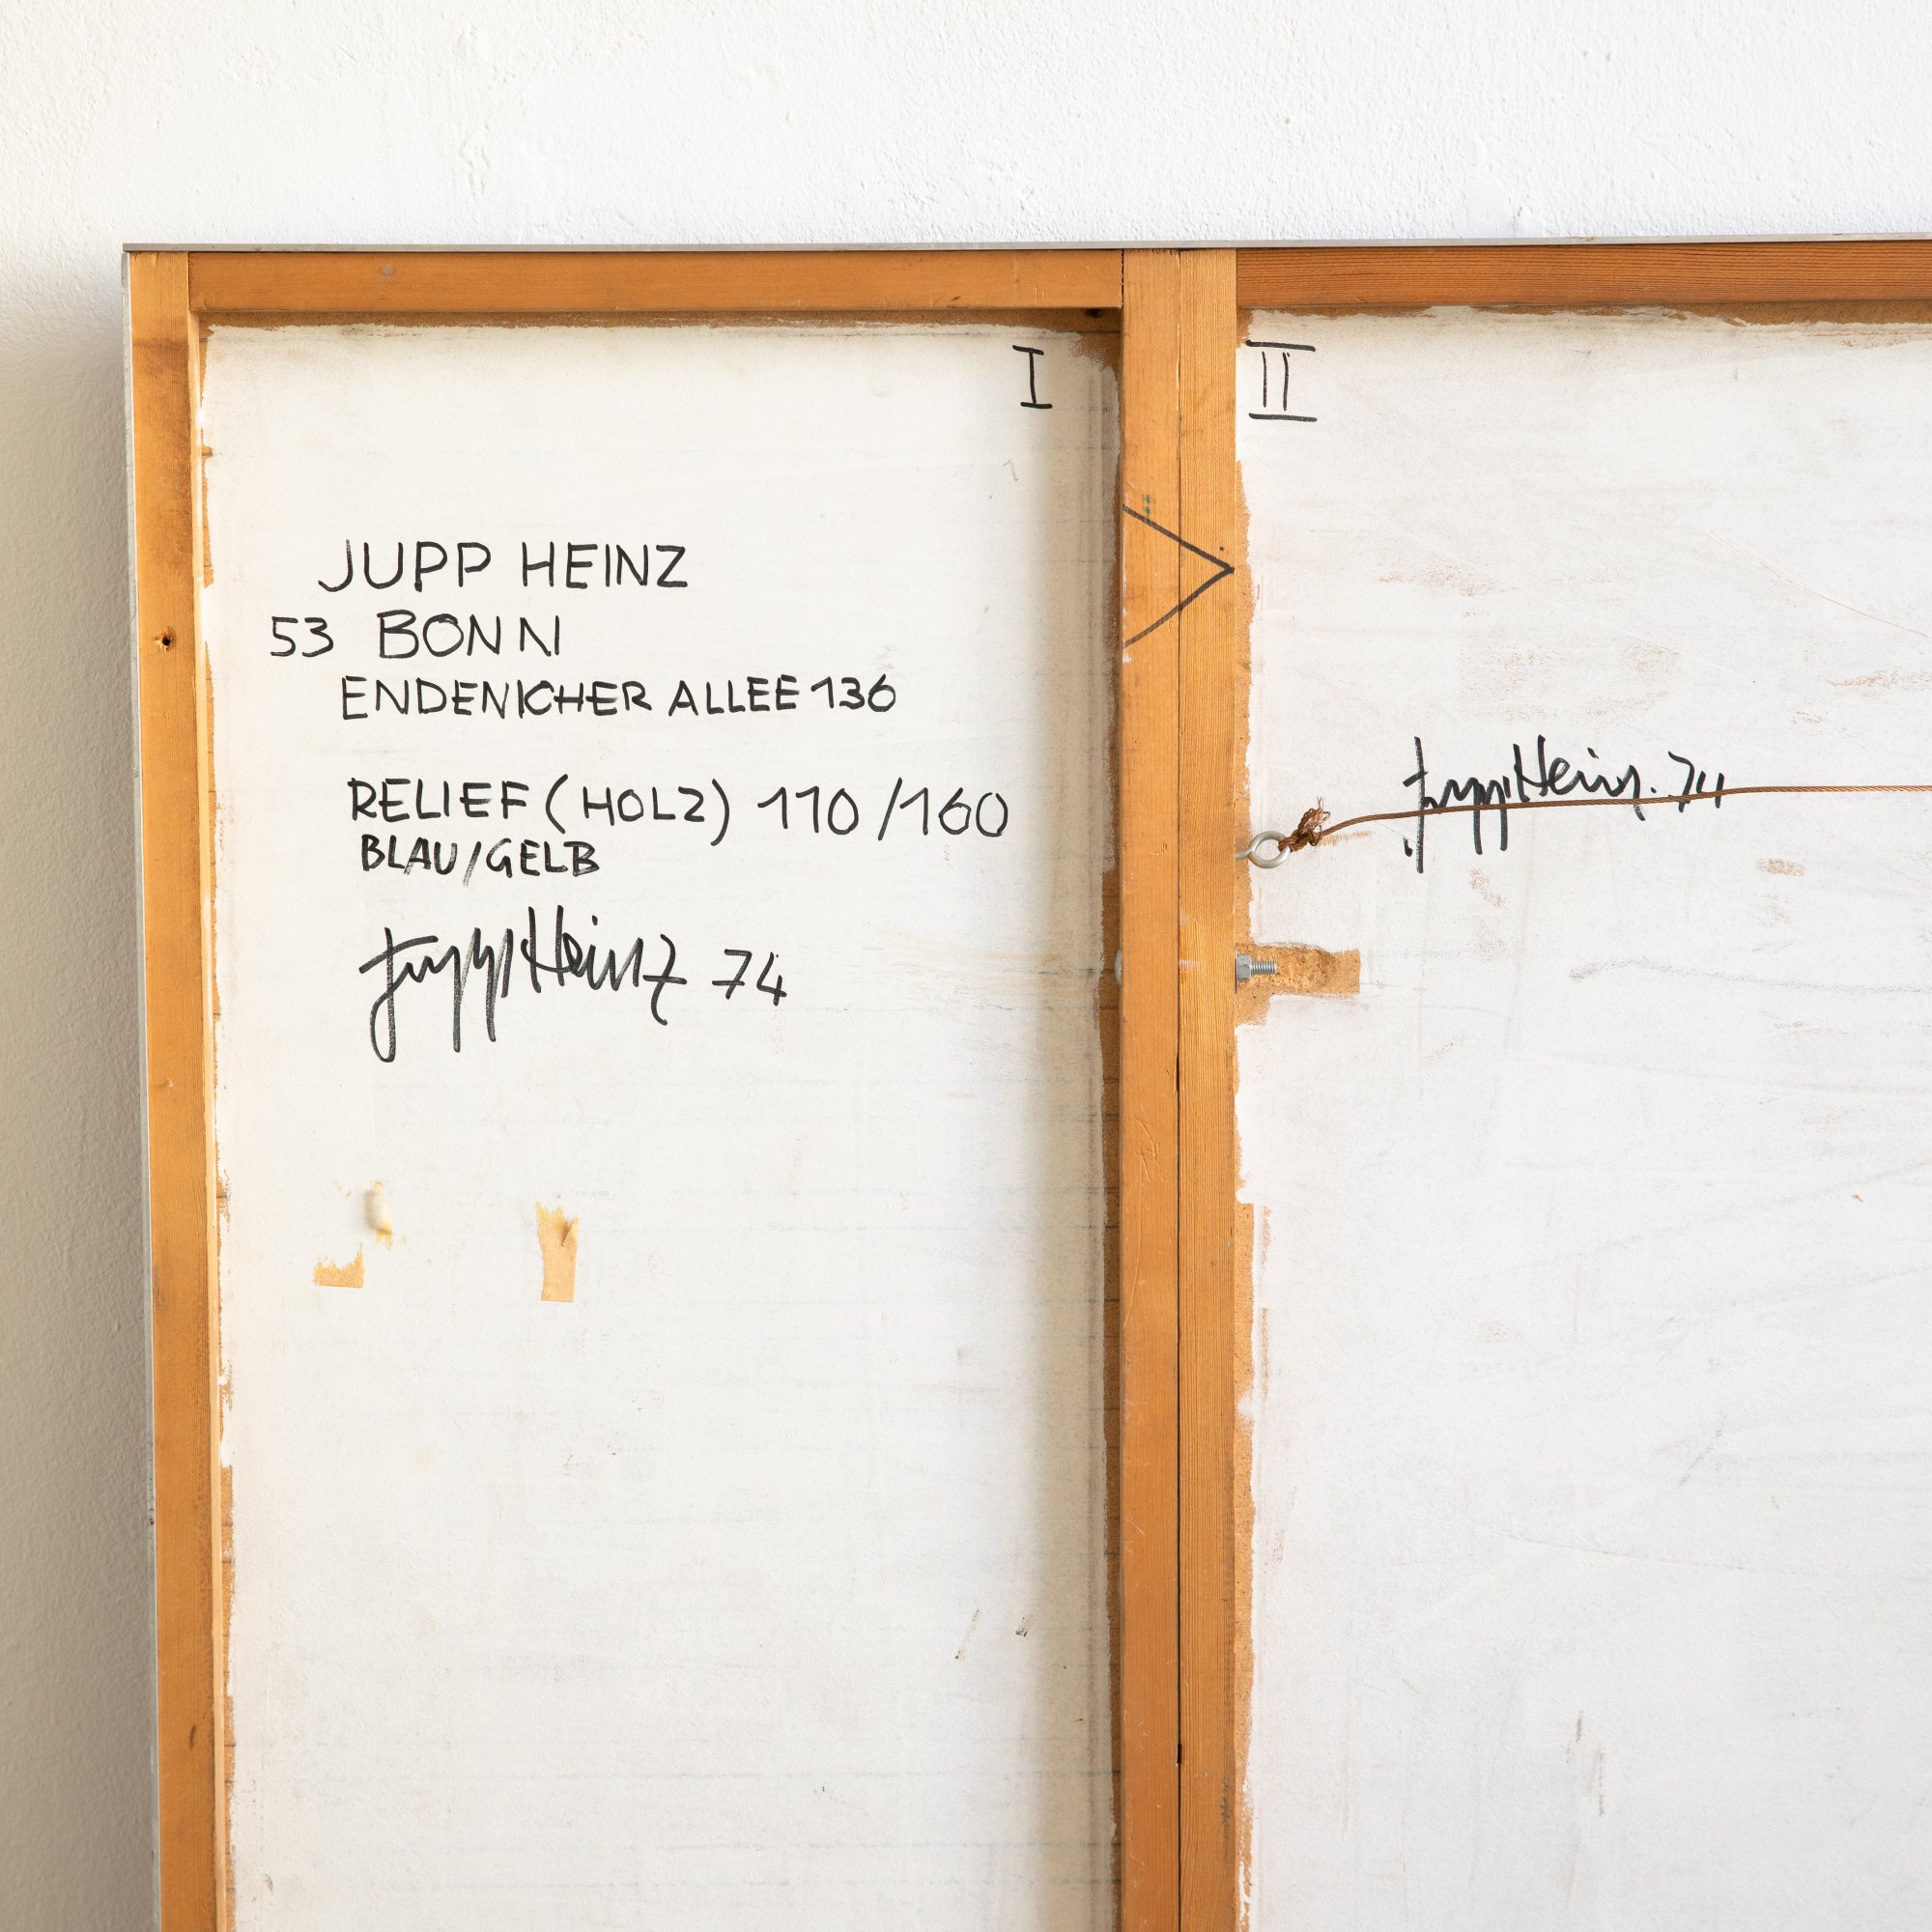 I
II
JUPP HEINZ
53 BONN
ENDENICHER ALLEE 136
RELIEF (HOLZ) 110/160
BLAU/GELB
Jupp Heinz 74
Jupp Heinz. 74